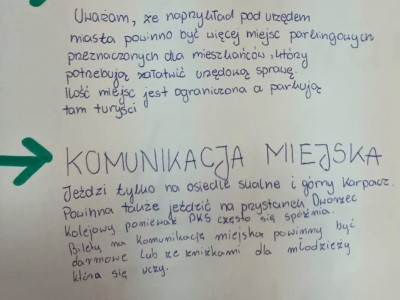 Uważam, że naprzykład pod urzędem
miasta powinno być więcej miejsc parkingowych
przeznaczonych dla mieszkańców, który
potrzebują załatwić urzędową sprawę.
Ilość miejsc jest ograniczona a parkują
tam turyści
KOMUNIKACJA MIEJSKA
Jeździ tylko na osiedle skalne i górny Karpacz.
Powinna także jeździć na przystanek Dworzec
Kolejowy ponieważ PKS często się spóźnia.
Bilety na komunikację miejską powinny być
darmowe lub ze zniżkami dla młodzieży
która się uczy.